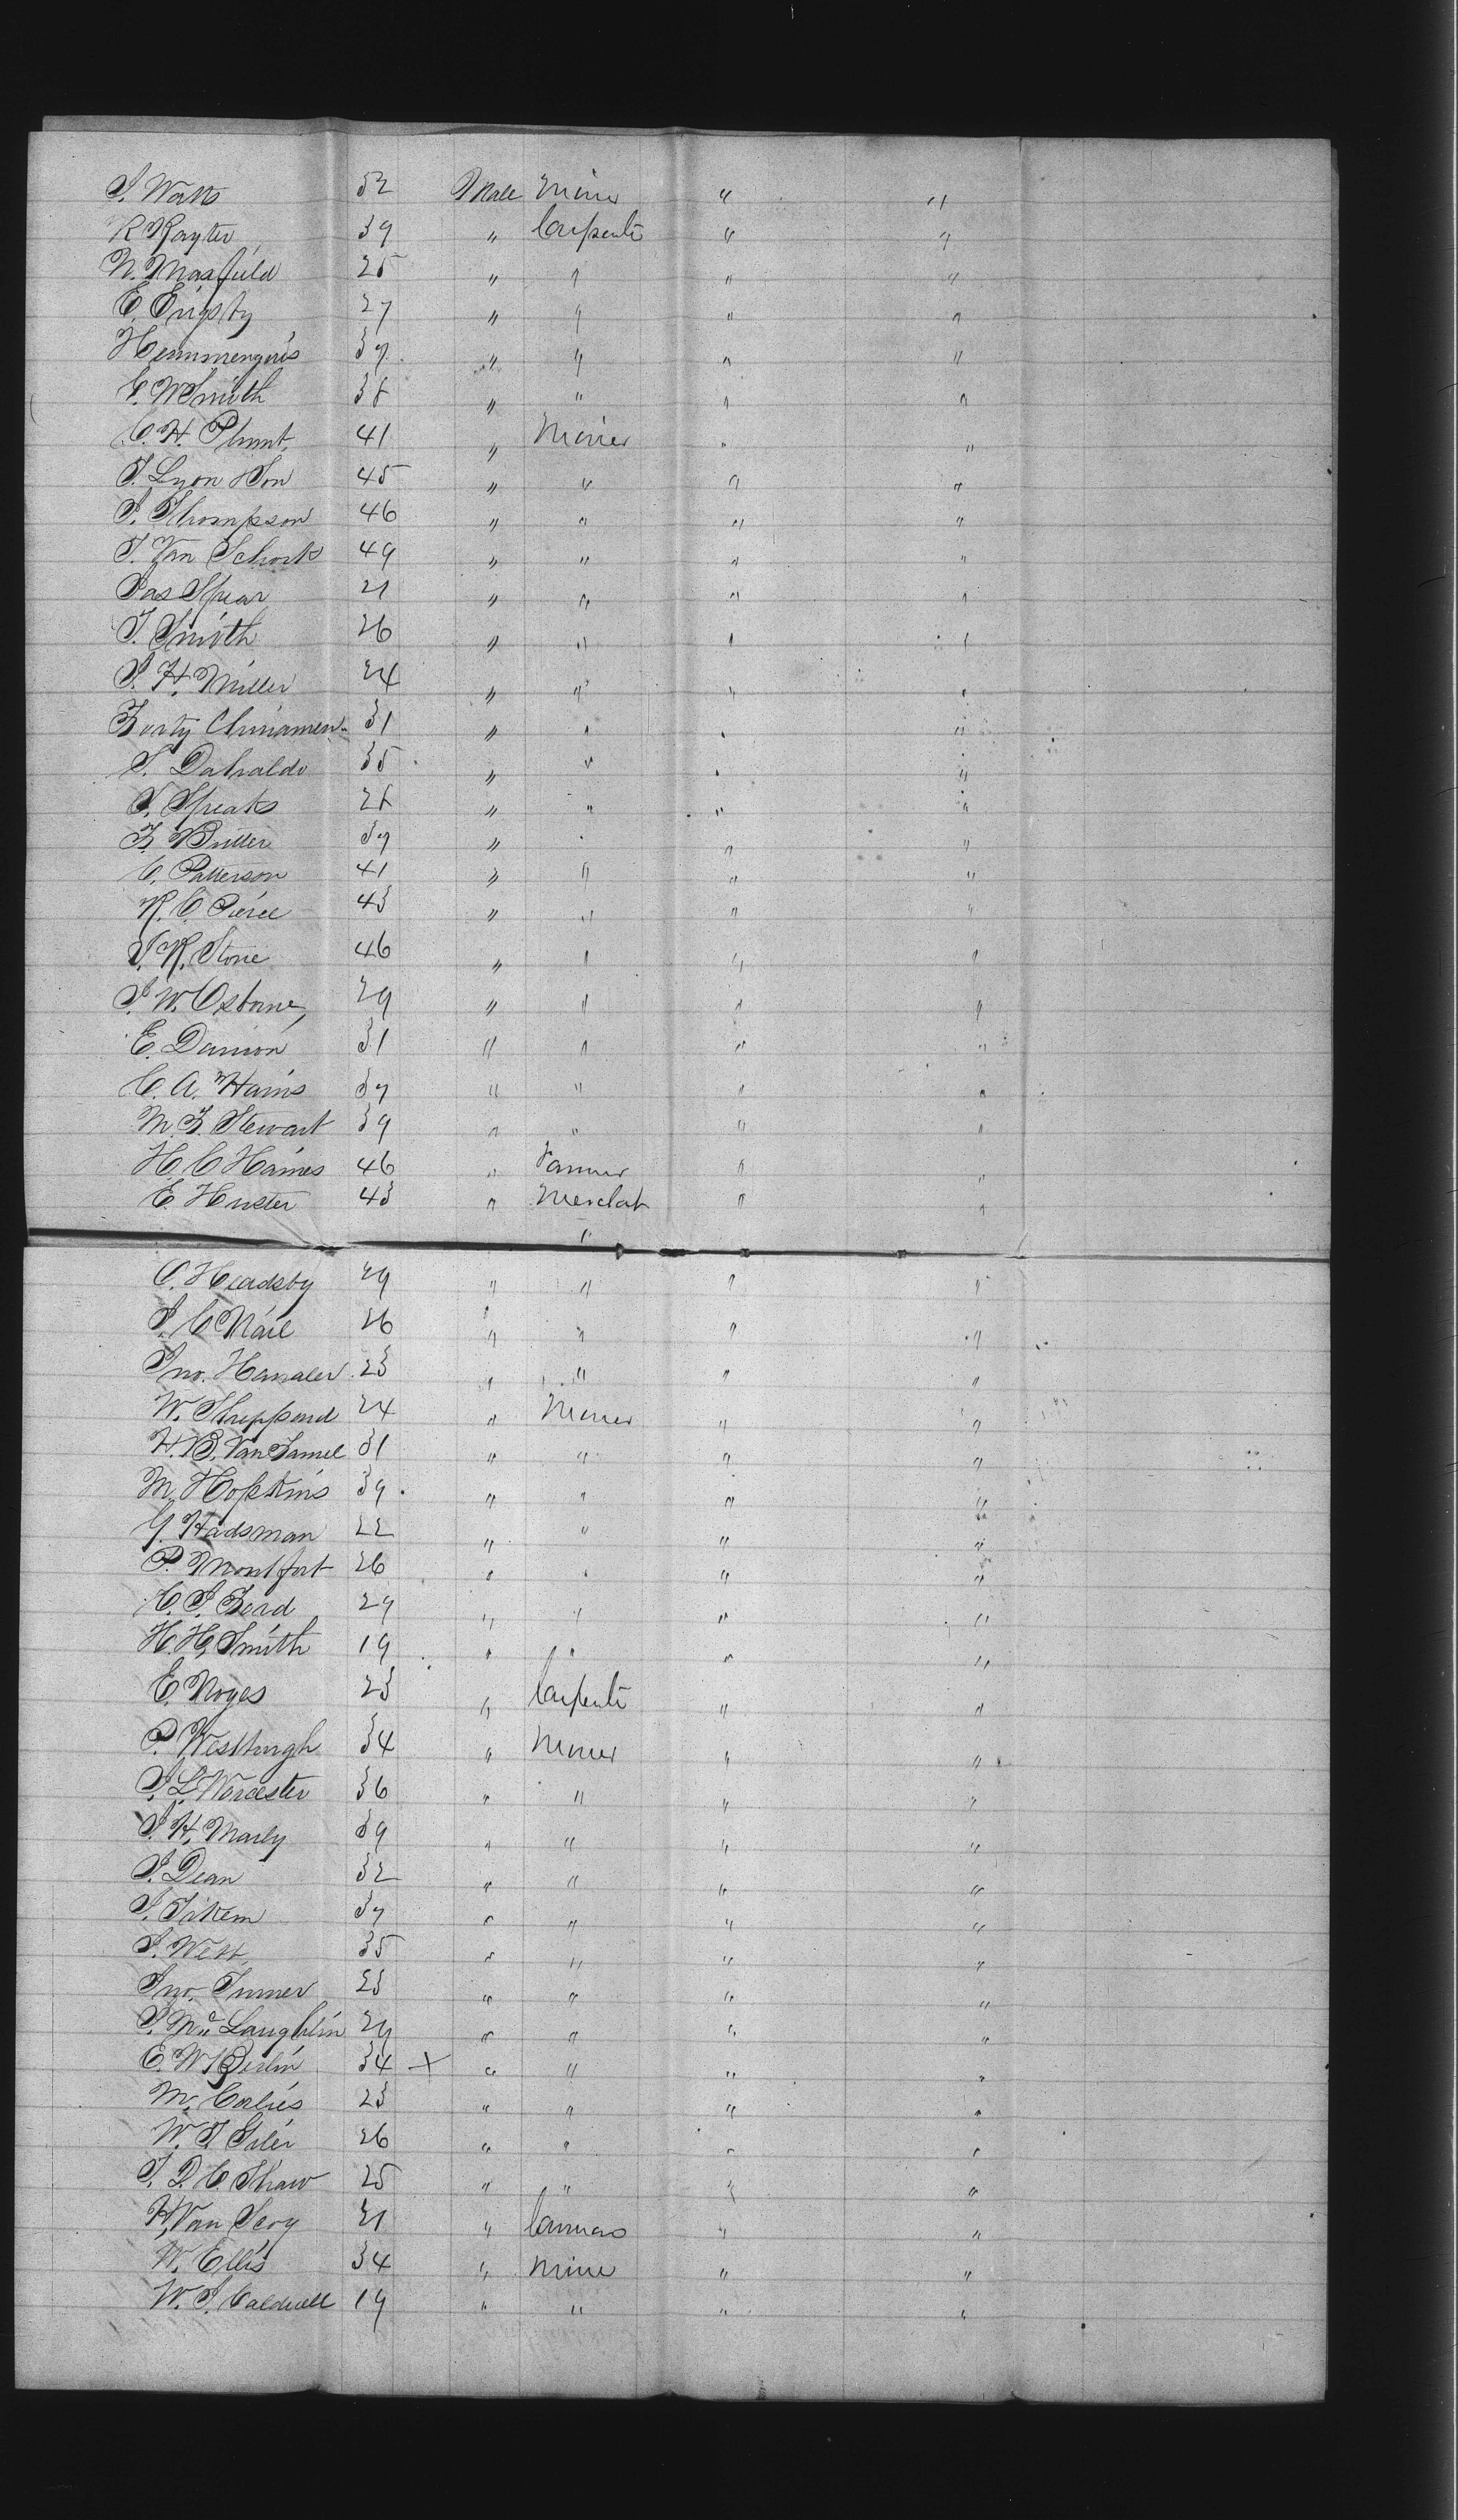 J. Watts 52 Male Miner " "
R Rayter 39 " Carpenter " "
N. Maxfield 25 " " " "
E. Eripsty 27 " " " "
Hemmengers 37 " " " "
E. W Smith 38 " " " "
C. H. Plumt. 41 " Miner " "
J. Lyon & Son 45 " " " "
J. Thompson 46 " " " "
J. Van Schork 49 " " " "
Jas Spear 21 " " " "
J. Smith 26 " " " "
J. H. Miller 24 " " " "
Forty Chinamen 31 " " " "
S. Dahaldo 35 " " " "
J. Speaks 28 " " " "
F. Buller 37 " " " "
C. Patterson 41 " " " "
R. C. Pierce 43 " " " "
J. R. Stone 46 " " " "
J. W. Osborne, 29 " " " "
E. Damon 31 " " " "
C. A. Harris 37 " " " "
M. F. Stewart 39 " " " "
H. C Haines 46 " Farmer " "
E. Huster 43 " Merchat " "
"
C. Headsby 29 " " " "
J. C Nail 26 " " " "
Jno. Hanaler 23 " " " "
W. Sheppard 24 " Miner " "
H. B. Van Tamel 31 " " " "
M. Hopkins 39 " " " "
G. Hadsman 22 " " " "
P. Montfort 26 " " " "
C. J. Bead 29 " " " "
H. H. Smith 19 " " " "
E. Noyes 23 " Carpenter " "
P. Westburgh 34 " Miner " "
J. L. Worcester 36 " " " "
J. H. Marly 39 " " " "
J. Dean 32 " " " "
J. Takem 37 " " " "
J. West 35 " " " "
Jno. Turner 23 " " " "
J. Mc Laughlin 29 " " " "
E. W Berlin 34 + " " " "
M. Corlies 23 " " " "
W. T. Siler 26 " " " "
J. D. C. Shaw 25 " " " "
H. Van Scoy 21 " " "
W. Ellis 34 " Mine " "
W. J. Caldwell 19 " " " "